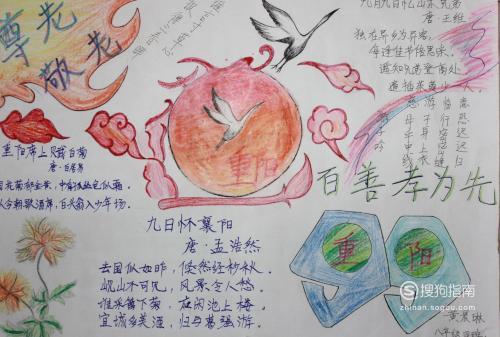 尊老
敬老
九月九日忆山东兄弟
唐·王维
独在异乡为异客,
每逢佳节倍思亲。
遥知兄弟登高处
遍插茱萸少一人
重阳
重阳席上赋白菊
唐·白居易
满园花菊郁金黄,中有孤丛色似霜。
从今朝歌酒席,白头翁入少年场。
百善孝为先
九日怀襄阳
唐·孟浩然
去国似如昨,倏然经杪秋。
岘山不可见,风景令人愁。
谁采篱下菊,应闲池上楼。
宜城多美酒,归与葛强游。
重 阳
搜狗指南
zhinan.sogou.com
八年级